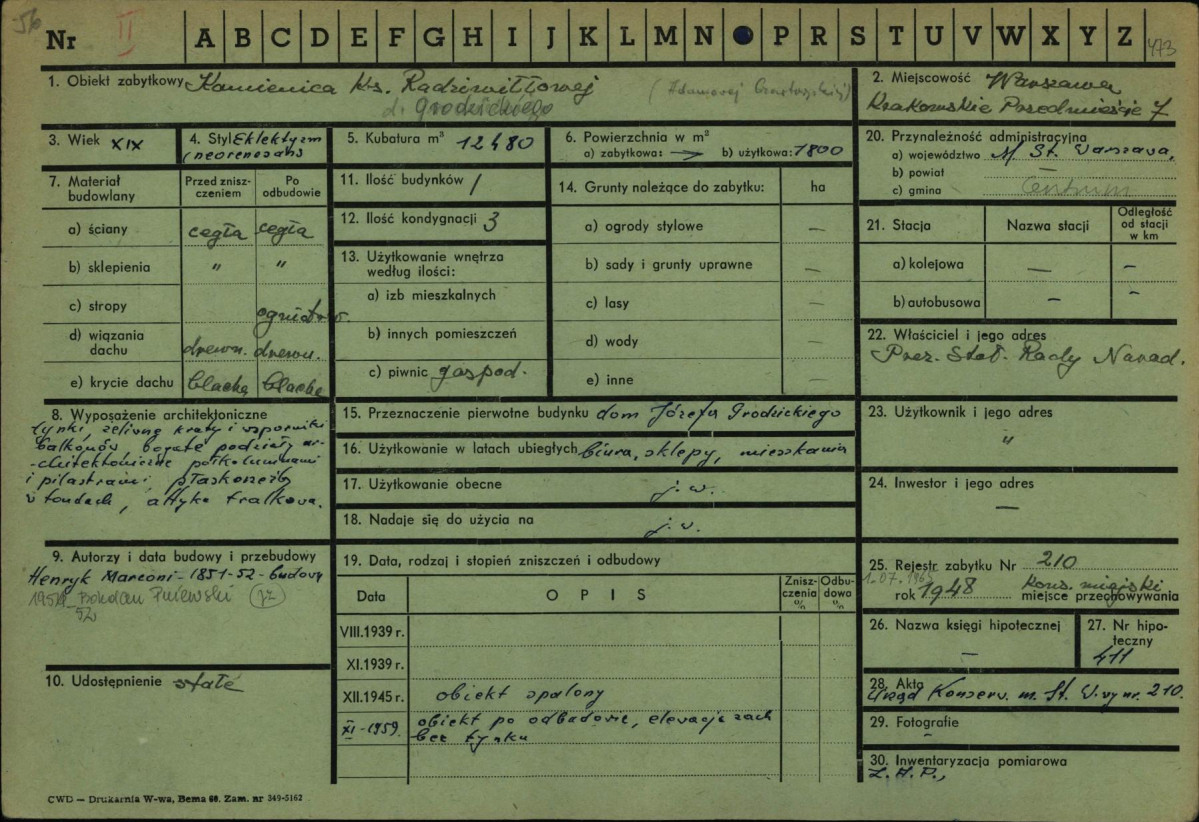 56
Nr II A B C D E F G H I J K L M N P R S T U V W X Y Z 473
1. Obiekt zabytkowy Kamienica ks. Radziwiłłowej (Adamowej Czartoryskiej)
d. Grodzickiego
2. Miejscowość Warszawa
Krakowskie Przedmieście 7
3. Wiek XIX
4. Styl Eklektyzm
(neorenesans
5. Kubatura m³ 12480
6. Powierzchnia w m²
a) zabytkowa: — b) użytkowa: 1800
7. Materiał budowlany
Przed zniszczeniem
Po odbudowie
a) ściany cegła cegła
b) sklepienia " "
c) stropy ogniotrw.
d) wiązania dachu drewn. drewn.
e) krycie dachu blacha blacha
8. Wyposażenie architektoniczne
tynki, żeliwne kraty i wsporniki
balkonów bogate podziały ar-
-chitektoniczne półkolumnami
i pilastrami, płaskorzeźby
w tondach, attyka tralkowa.
9. Autorzy i data budowy i przebudowy
Henryk Marconi - 1851-52 - budowy
Bohdan Pniewski
52
10. Udostępnienie stałe
11. Ilość budynków 1
12. Ilość kondygnacji 3
13. Użytkowanie wnętrza
według ilości:
a) izb mieszkalnych
b) innych pomieszczeń
c) piwnic gospod.
14. Grunty należące do zabytku: ha
a) ogrody stylowe —
b) sady i grunty uprawne —
c) lasy —
d) wody —
e) inne —
15. Przeznaczenie pierwotne budynku dom Józefa Grodzickiego
16. Użytkowanie w latach ubiegłych biura, sklepy, mieszkania
17. Użytkowanie obecne j. w.
18. Nadaje się do użycia na j. w.
19. Data, rodzaj i stopień zniszczeń i odbudowy
Data OPIS Zniszczenia % Odbudowa %
VIII.1939 r.
XI.1939 r.
XII.1945 r. obiekt spalony
XI-1959. obiekt po odbudowie, elewacja zach
bez tynku
20. Przynależność administracyjna
a) województwo M. St. Warszawa,
b) powiat —
c) gmina Centrum
21. Stacja Nazwa stacji Odległość od stacji w km
a) kolejowa — —
b) autobusowa — —
22. Właściciel i jego adres
Prez. Stoł. Rady Narod.
23. Użytkownik i jego adres
"
24. Inwestor i jego adres
—
25. Rejestr zabytku Nr 210
1.07.1965
rok 1948 Kons. miejski
miejsce przechowywania
26. Nazwa księgi hipotecznej
—
27. Nr hipoteczny
411
28. Akta
Urząd Konserw. m. St. W-wy nr. 210.
29. Fotografie
–
30. Inwentaryzacja pomiarowa
Z.A.P.,
CWD — Drukarnia W-wa, Bema 60. Zam. nr 349-5162